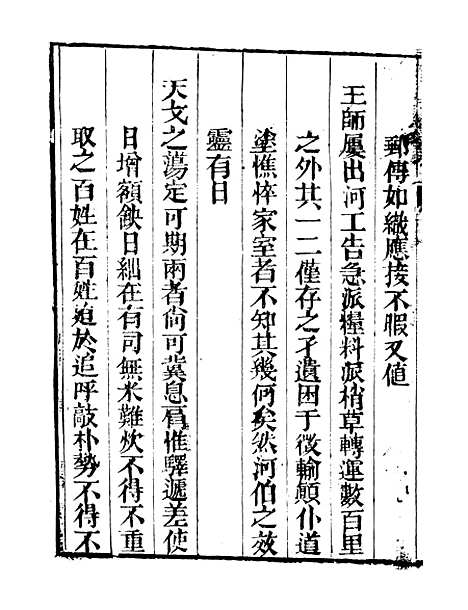 郵傳如織應接不暇又值
王師屢出河工告急派糧料派梢草轉運數百里
之外其一二僅存之孑遺困于徵輸顛仆道
塗憔悴家室者不知其幾何矣然河伯之效
靈有日
天戈之蕩定可期兩者尙可冀息肩惟驛遞差使
日增額鈌日絀在有司無米難炊不得不重
取之百姓在百姓迫於追呼敲朴勢不得不